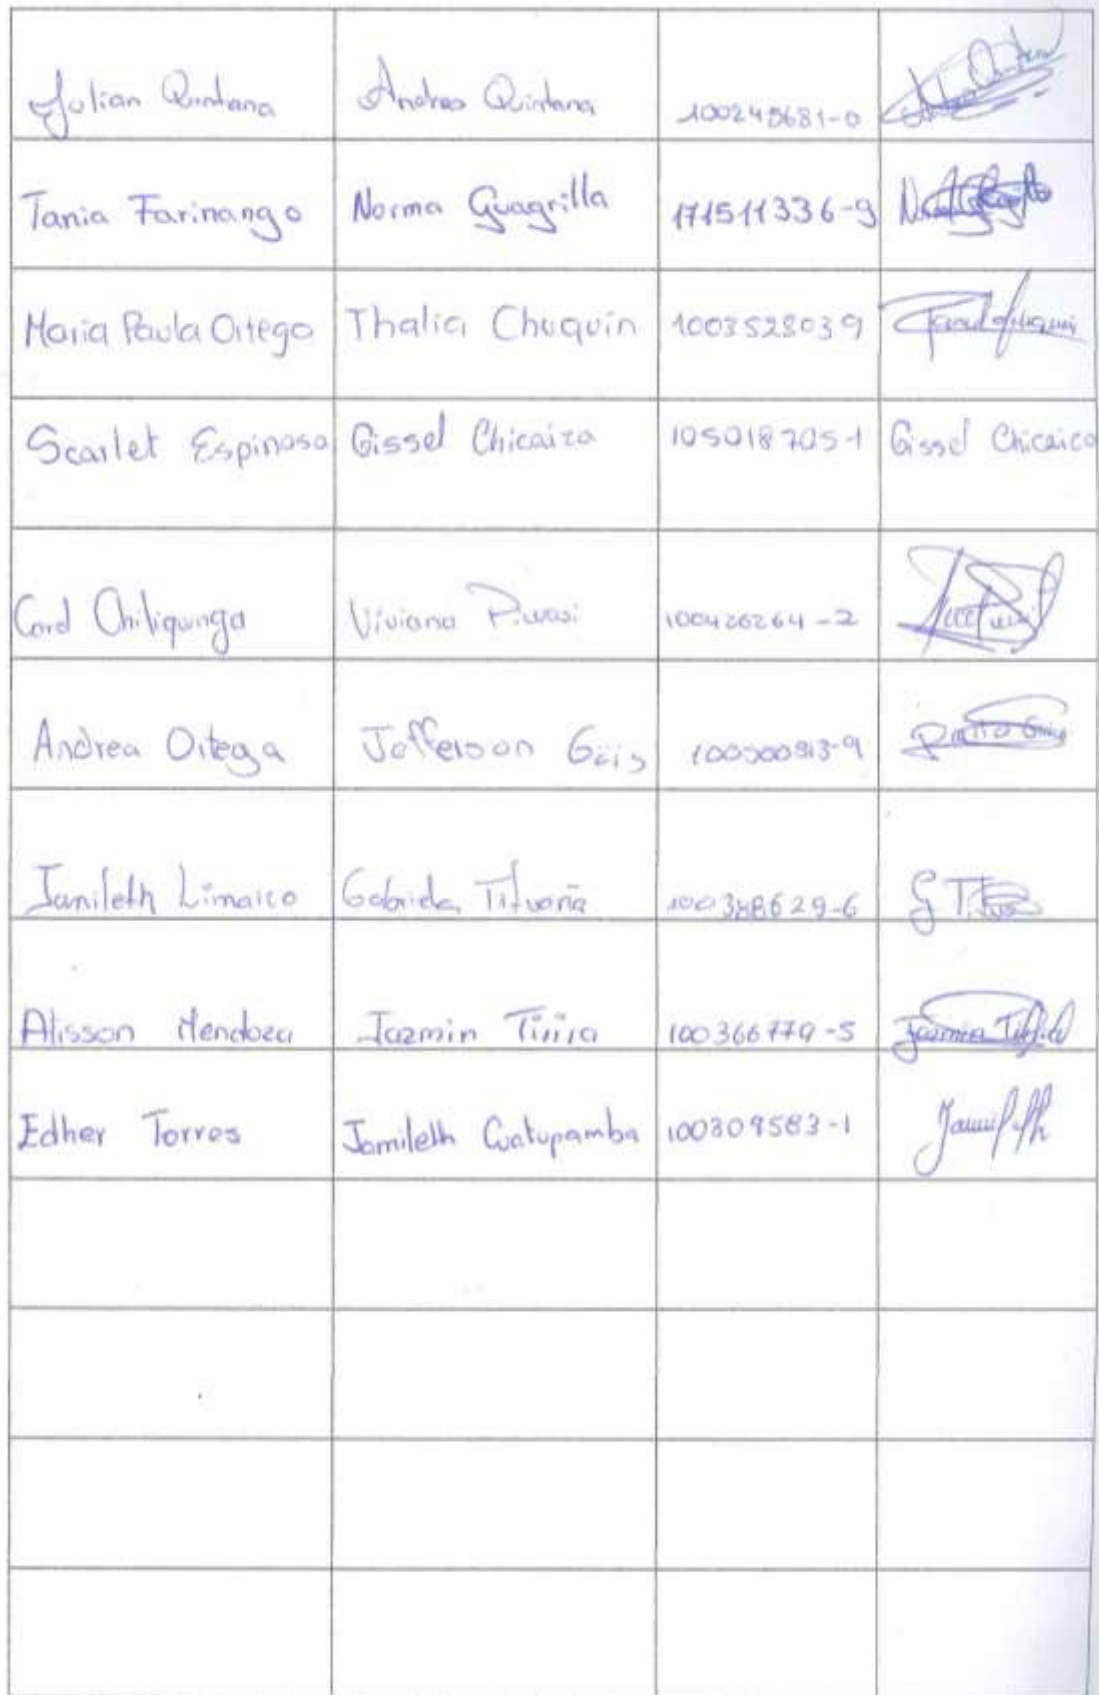 Julian Quintana Andres Quintana 100245681-0
Tania Farinango Norma Guagrilla 171511336-9
Maria Paula Ortega Thalia Chuquin 1003528039
Scarlet Espinosa Gissel Chicaiza 105018705-1 Gissel Chicaiza
Chiliquinga Viviana 100426264-2
Andrea Ortega Jefferson
Jamileth Limaico Gabriela Tituaña 100388629-6
Alisson Mendoza Jazmin Tirira 100366779-5
Edher Torres Jamileth Guatupamba 100309583-1